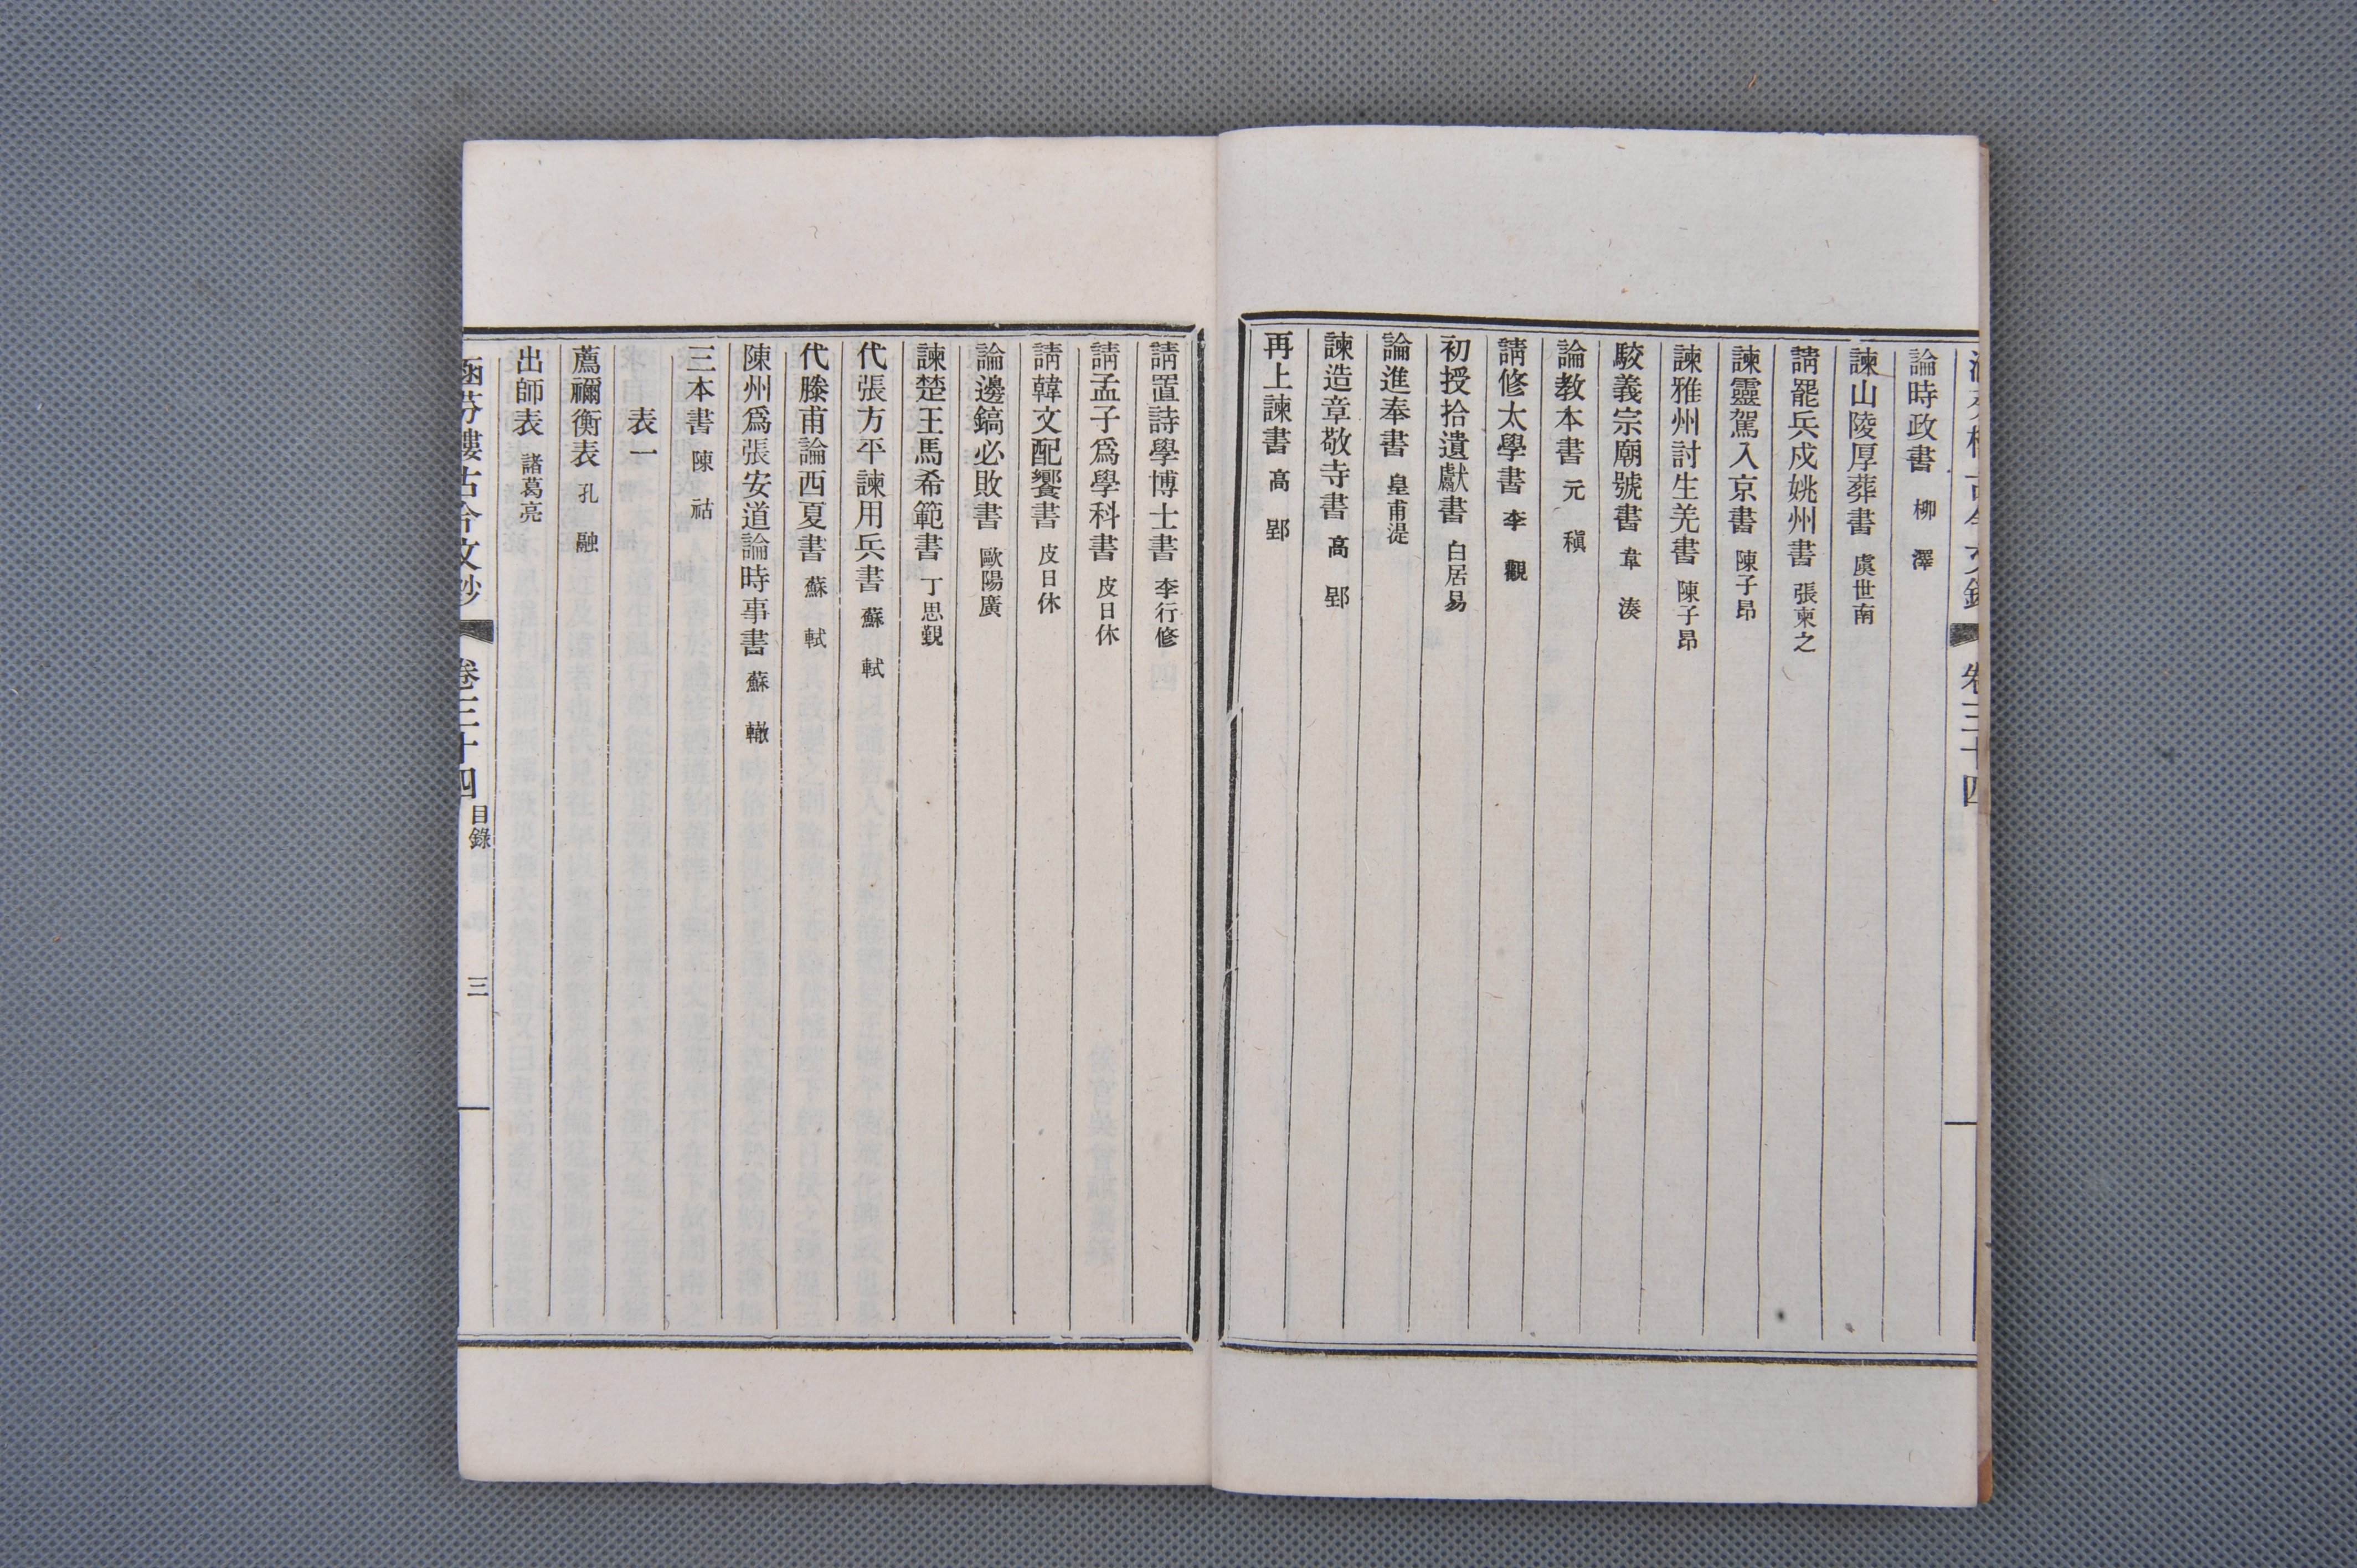 論時政書 柳澤
諫山陵厚葬書 虞世南
請罷兵戍姚州書 張柬之
諫靈駕入京書 陳子昂
諫雅州討生羌書 陳子昂
駮義宗廟號書 韋湊
論教本書 元稹
請修太學書 李觀
初授拾遺獻書 白居易
論進奉書 皇甫湜
諫造章敬寺書 高郢
再上諫書 高郢
請置詩學博士書 李行修
請孟子爲學科書 皮日休
請韓文配饗書 皮日休
論邊鎬必敗書 歐陽廣
諫楚王馬希範書 丁思覲
代張方平諫用兵書 蘇軾
代滕甫論西夏書 蘇軾
陳州爲張安道論時事書 蘇轍
三本書 陳祜
表一
薦禰衡表 孔融
出師表 諸葛亮
涵芬樓古今文鈔 卷三十四 目錄 三